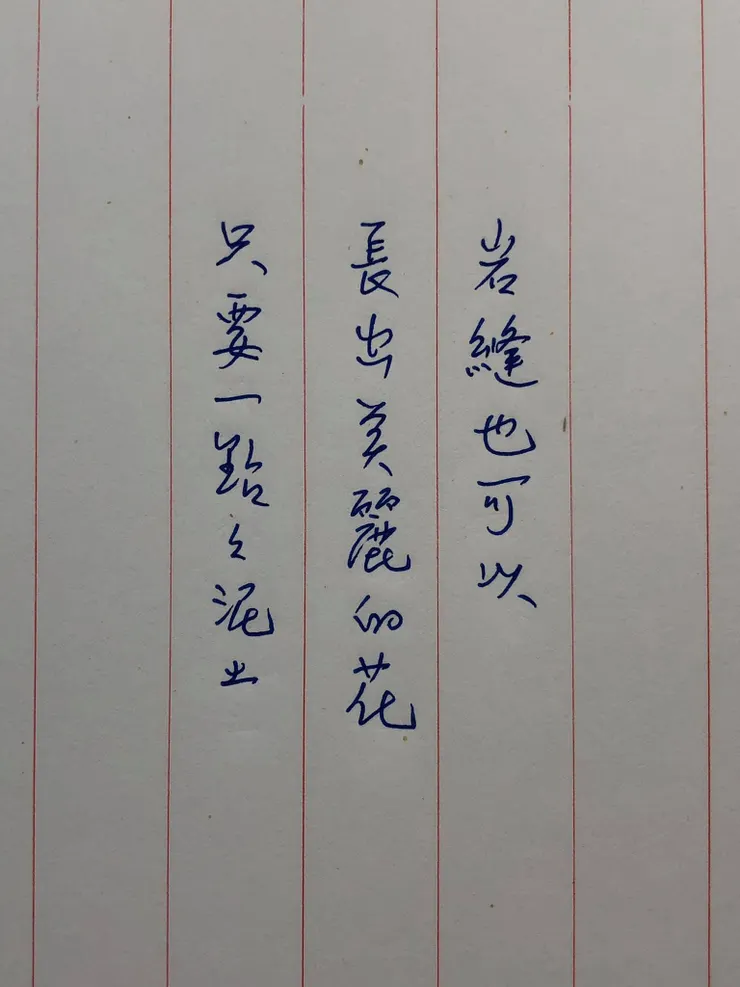 岩縫也可以
長出美麗的花
只要一點々泥土